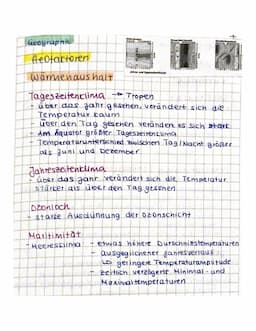 Geographie
Geofaktoren
Wärmehaushalt
Tageszeitenklima → Tropen
- über das Jahr gesehen, verändert sich die
Temperatur kaum
- über den Tag gesehen verändert es sich stark
- Am Äquator größter Tageszeitenklima
- Temperaturunterschied zwischen Tag/Nacht größer
als Juni und Dezember
Jahreszeitenklima
- über das Jahr verändert sich die Temperatur
stärker als über den Tag gesehen
Ozonloch
- starke Ausdünnung der Ozonschicht
Maritimität
- Meeresklima - etwas höhere Durschnittstemperaturen
- Ausgeglichener Jahresverlauf
↳ geringere Temperaturamplitude
- zeitlich verzögerte Minimal- und
Maximaltemperaturen